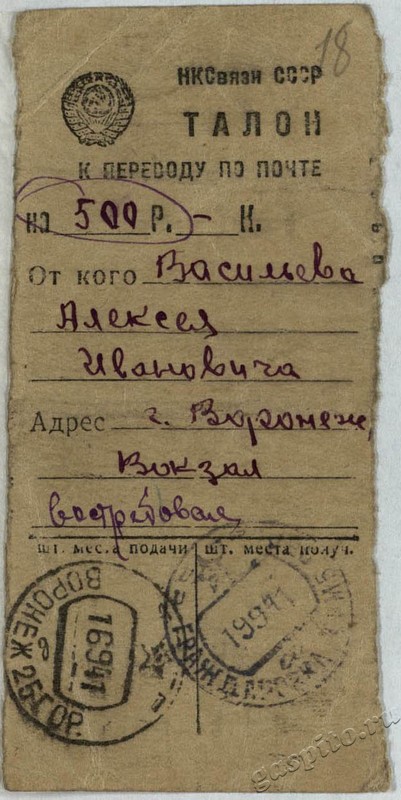 18
НКСвязи СССР
ТАЛОН
К ПЕРЕВОДУ ПО ПОЧТЕ
на 500 Р. - К.
От кого Васильева
Алексея
Ивановича
Адрес г. Воронеж,
Вокзал
востребован
шт. места подачи шт. места получ.
ВОРОНЕЖ 25 ГОР.
16941
в
19941
ГРАЖДАНСКА
gaspito.ru